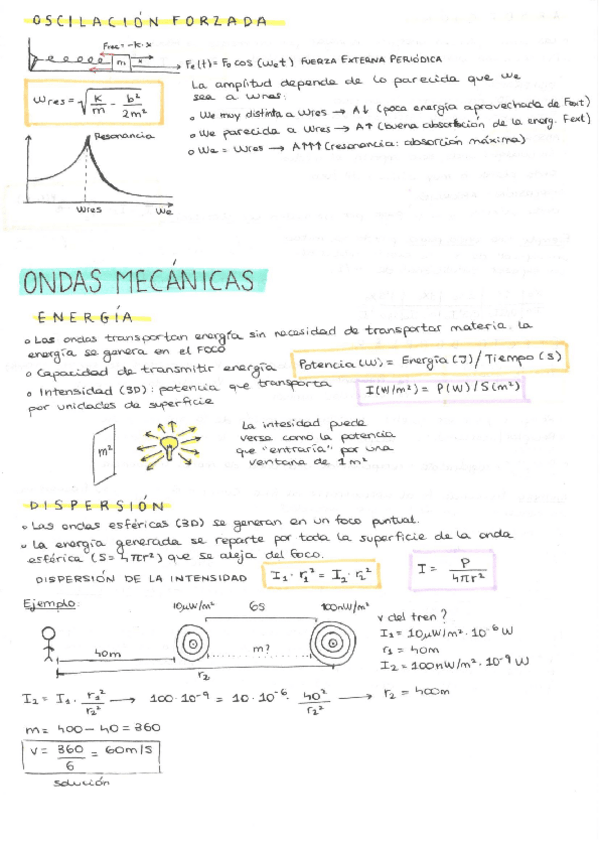 OSCILACIÓN FORZADA
Frec = -k·x
m
x
Fe(t) = F0 cos (wet) FUERZA EXTERNA PERIÓDICA
La amplitud depende de lo parecida que we
sea a wres:
wres = √(k/m - b²/2m²)
• We muy distinta a wres → A↓ (poca energía aprovechada de Fext)
• We parecida a wres → A↑ (buena absorción de la energ. Fext)
• We = wres → A↑↑↑ (resonancia: absorción máxima)
Resonancia
wres
we
ONDAS MECÁNICAS
ENERGÍA
• Las ondas transportan energía sin necesidad de transportar materia. La
energía se genera en el FOCO
• Capacidad de transmitir energía
Potencia (W) = Energía (J) / Tiempo (s)
• Intensidad (3D): potencia que transporta
por unidades de superficie
I (W/m²) = P(W) / S(m²)
m²
La intesidad puede
verse como la potencia
que "entraría" por una
ventana de 1m²
DISPERSIÓN
• Las ondas esféricas (3D) se generan en un foco puntual.
• La energía generada se reparte por toda la superficie de la onda
esférica (S = 4πr²) que se aleja del foco.
DISPERSIÓN DE LA INTENSIDAD
I1 · r1² = I2 · r2²
I = P / 4πr²
Ejemplo:
10μW/m²
6s
100nW/m²
40m
m?
r2
v del tren?
I1 = 10μW/m² · 10⁻⁶ W
r1 = 40m
I2 = 100nW/m² · 10⁻⁹ W
I2 = I1 · r1²/r2² → 100·10⁻⁹ = 10·10⁻⁶ · 40²/r2² → r2 = 400m
m = 400 - 40 = 360
v = 360/6 = 60m/s
solución